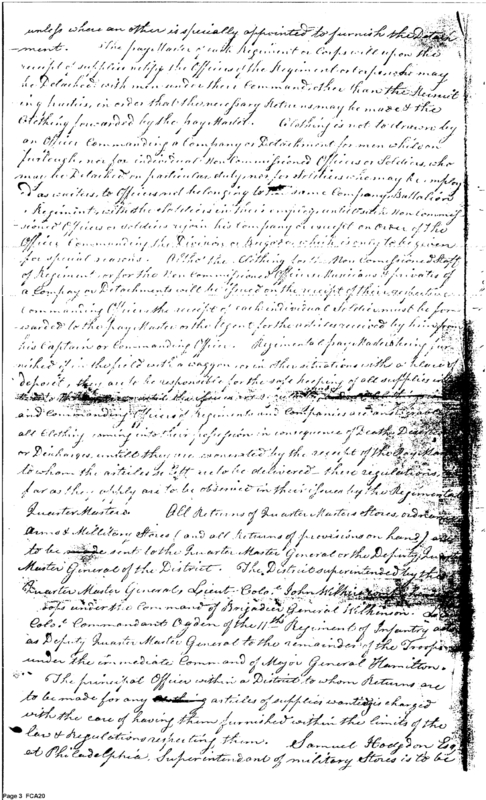 unless where an other is specially appointed to furnish the Detach
ment. The pay Master of each Regiment or Corps will upon the
receipt of supplies notify the Officers of the Regiment or corps who may
be Detached with men under their Command other than the Recruit
ing parties in order that the necessary Returns may be made & the
Clothing forwarded by the pay Master. Clothing is not to be drawn by
an Officer Commanding a Company or Detachment for men while on
furlough, nor for individual Non Commissioned Officers or Soldiers, who
may be Detached on particular duty, nor for soldiers who may be employ
d as waiters to Officers not belonging to the same Company Battalion
Regiment with the soldiers in their employ, until such Non Commis
sioned Officers or soldiers rejoin his Company or except on order of the
Officer Commanding the Division or Brigade which is only to be given
for special reasons. Altho' the Clothing for the Non Commissioned Staff
of Regiment or for the Non Commissioned Officers Musicians & privates of
a Company or Detachments will be issued on the receipt of their respective
Commanding Officers the receipt of each individual soldier must be for
warded to the pay Master or the Agent for the articles received by him from
his Captain or Commanding Officer. Regimental pay Masters being fur
nished if in the field with a waggon or in other situations with a place of
deposit, they are to be responsible for the safe keeping of all supplies
until they
and Commanding Officers of Regiments and Companies
all Clothing coming into their possession in consequence of Deaths
or Discharges, until they are exonerated by the receipt of the Pay Master
to whom the articles to be delivered these regulations
far as they apply are to be observed in their Issues by the Regimental
Quarter Masters. All Returns of Quarter Masters Stores ordnance
arms & Military Stores (and all Returns of provisions on hand) are
to be sent to the Quarter Master General or the Deputy Quarter
Master General of the District. The District superintended by the
Quarter Master General, Lieut. Colo. John Wilkins
under the Command of Brigadier General Wilkinson.
Colo. Commandant Ogden of the 11th Regiment of Infantry
as Deputy Quarter Master General to the remainder of the Troops
under the immediate Command of Major General Hamilton.
The principal Officer within a District to whom Returns are
to be made for any articles of supplies wanted is charged
with the care of having them furnished within the limits of the
law & Regulations respecting them. Samuel Hodgdon Esq
at Philadelphia, Superintendant of military Stores is to be
Page 3 FCA20